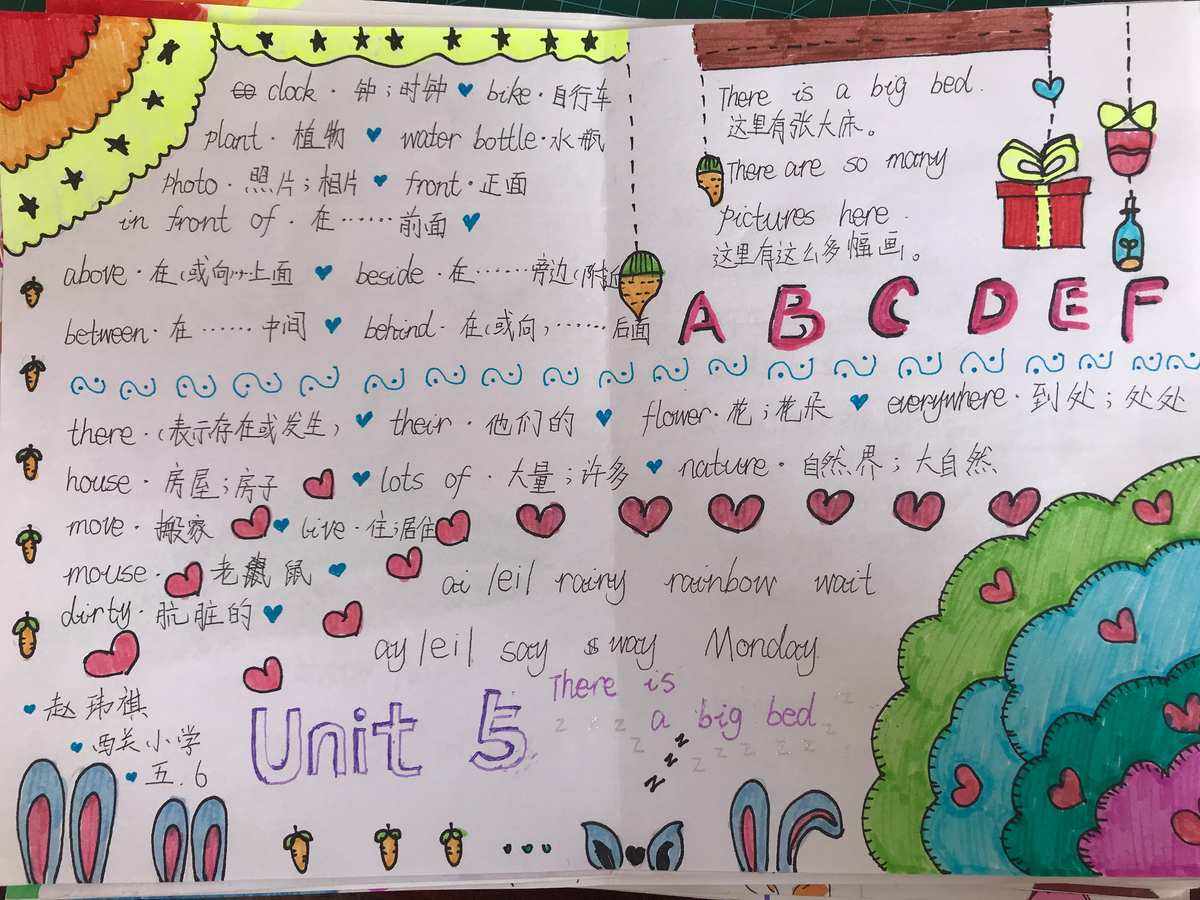 clock · 钟；时钟 bike · 自行车
plant · 植物 water bottle · 水瓶
photo · 照片；相片 front · 正面
in front of · 在……前面
above · 在（或向…上面 beside · 在……旁边（附近
between · 在……中间 behind · 在（或向，……后面
There is a big bed.
这里有张大床。
There are so many
pictures here.
这里有这么多幅画。
A B C D E F
there ·（表示存在或发生） their · 他们的 flower · 花；花朵 everywhere · 到处；处处
house · 房屋；房子 lots of · 大量；许多 nature · 自然界；大自然
move · 搬家 live · 住；居住
mouse · 老鼠
dirty · 肮脏的
ai /eil rainy rainbow wait
ay /eil say way Monday
赵玮祺
西关小学
五.6
Unit 5
There is
a big bed
z z z z z z z z z z z z z